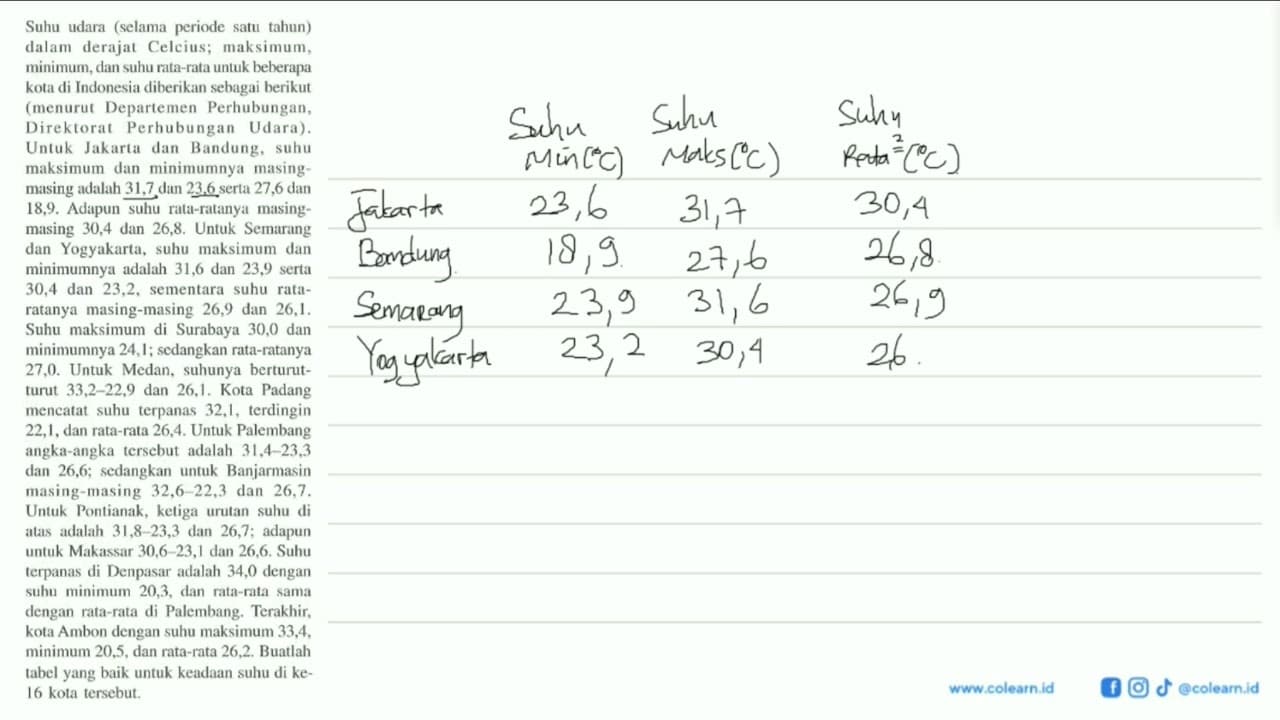 Suhu udara (selama periode satu tahun)
dalam derajat Celcius; maksimum,
minimum, dan suhu rata-rata untuk beberapa
kota di Indonesia diberikan sebagai berikut
(menurut Departemen Perhubungan,
Direktorat Perhubungan Udara).
Untuk Jakarta dan Bandung, suhu
maksimum dan minimumnya masing-
masing adalah 31,7 dan 23,6 serta 27,6 dan
18,9. Adapun suhu rata-ratanya masing-
masing 30,4 dan 26,8. Untuk Semarang
dan Yogyakarta, suhu maksimum dan
minimumnya adalah 31,6 dan 23,9 serta
30,4 dan 23,2, sementara suhu rata-
ratanya masing-masing 26,9 dan 26,1.
Suhu maksimum di Surabaya 30,0 dan
minimumnya 24,1; sedangkan rata-ratanya
27,0. Untuk Medan, suhunya berturut-
turut 33,2–22,9 dan 26,1. Kota Padang
mencatat suhu terpanas 32,1, terdingin
22,1, dan rata-rata 26,4. Untuk Palembang
angka-angka tersebut adalah 31,4–23,3
dan 26,6; sedangkan untuk Banjarmasin
masing-masing 32,6–22,3 dan 26,7.
Untuk Pontianak, ketiga urutan suhu di
atas adalah 31,8–23,3 dan 26,7; adapun
untuk Makassar 30,6–23,1 dan 26,6. Suhu
terpanas di Denpasar adalah 34,0 dengan
suhu minimum 20,3, dan rata-rata sama
dengan rata-rata di Palembang. Terakhir,
kota Ambon dengan suhu maksimum 33,4,
minimum 20,5, dan rata-rata 26,2. Buatlah
tabel yang baik untuk keadaan suhu di ke-
16 kota tersebut.
Suhu Suhu Suhu
Min (°C) Maks (°C) Rata² (°C)
Jakarta 23,6 31,7 30,4
Bandung 18,9 27,6 26,8
Semarang 23,9 31,6 26,9
Yogyakarta 23,2 30,4 26.
www.colearn.id @colearn.id